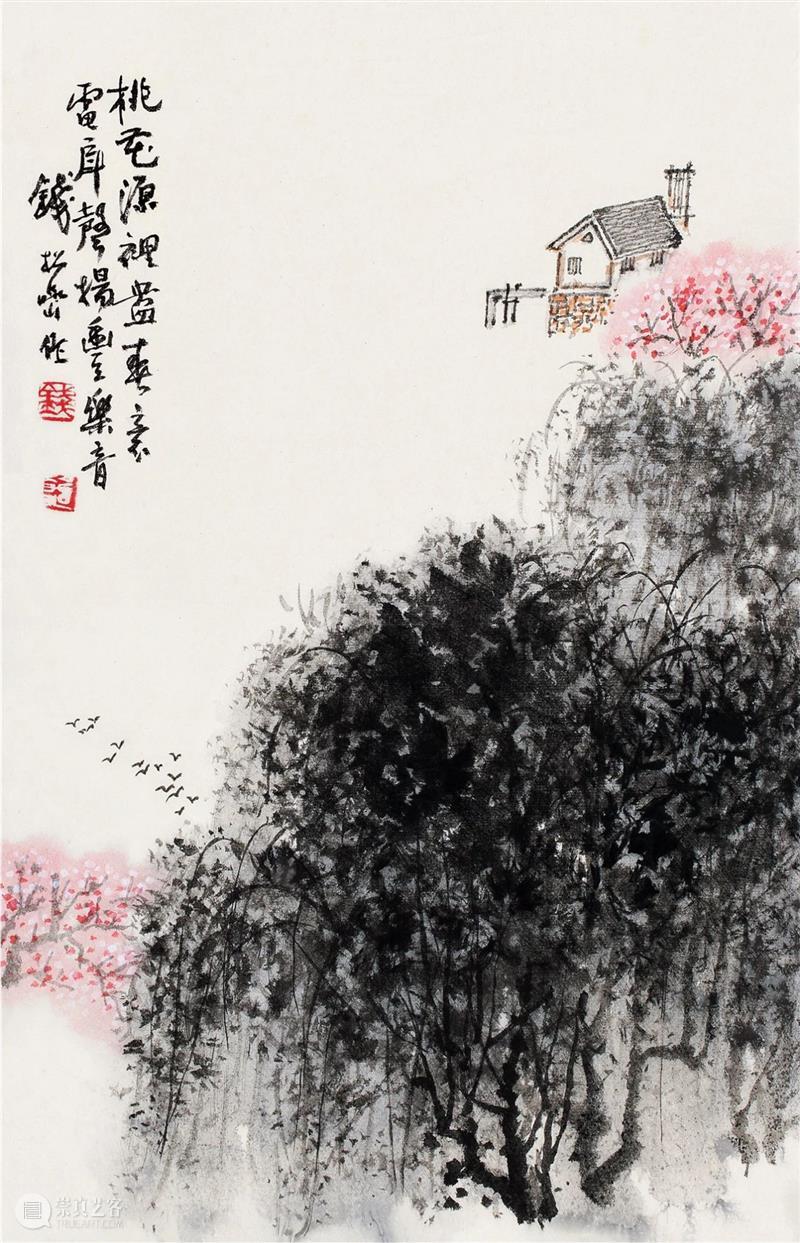 桃花源裡盡春意
電聲揚樂音
錢松嵒作
錢
崇真艺客
TRUEART.COM